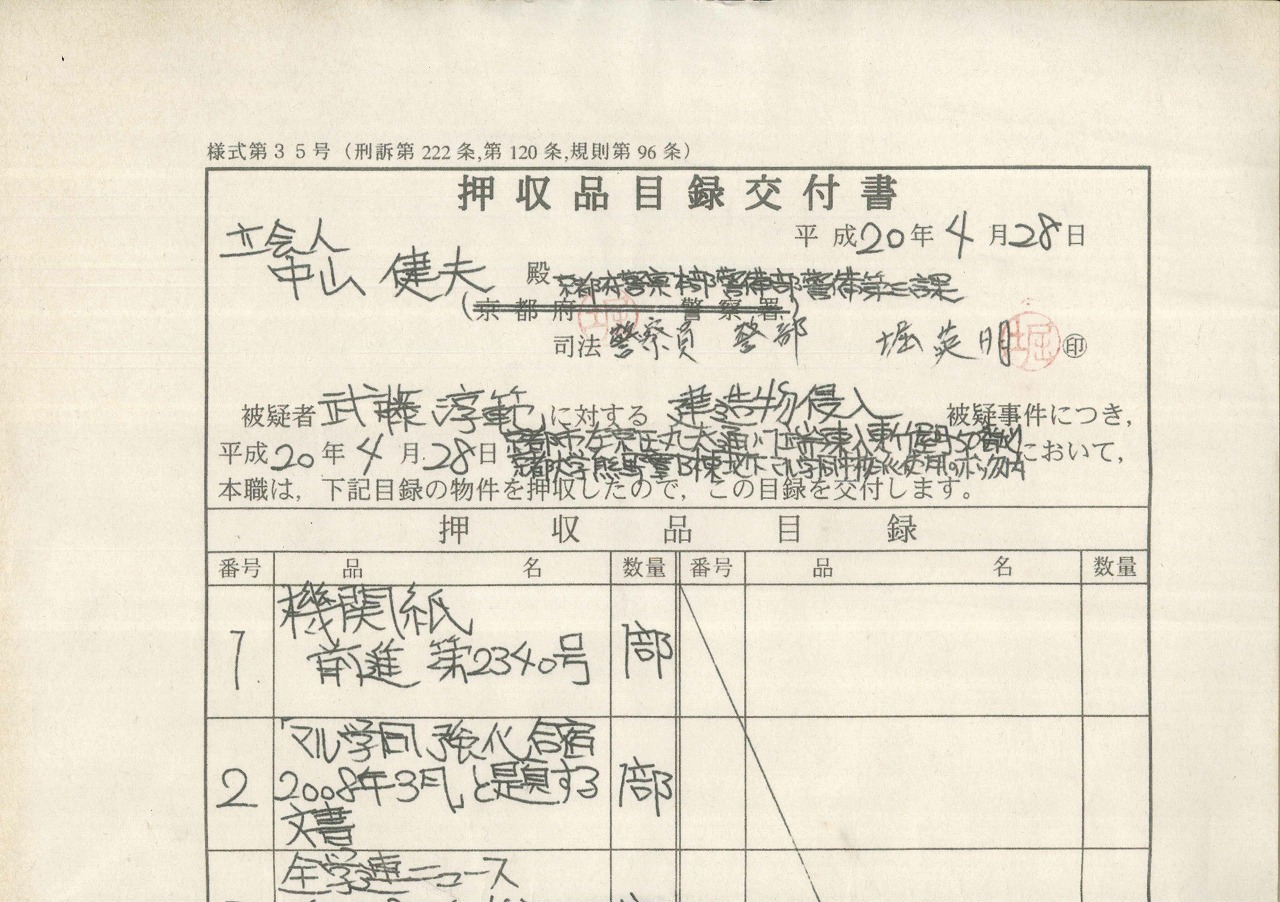 様式第35号（刑訴第222条,第120条,規則第96条）
押収品目録交付書
平成20年4月28日
立会人
中山 健夫 殿
京都府警察本部警備部警備第三課
（京都府 警察署）
司法警察員 警部 堀 英明 ㊞
被疑者 武藤 淳範 に対する 建造物侵入 被疑事件につき，
平成20年4月28日 において，
京都市左京区丸太町通
京都大学熊野寮B棟地下マル学同
本職は，下記目録の物件を押収したので，この目録を交付します。
押収品目録
番号 品名 数量 番号 品名 数量
1 機関紙 1部
前進 第2340号
2 「マル学同 強化合宿 1部
2008年3月」と題する
文書
全学連ニュース